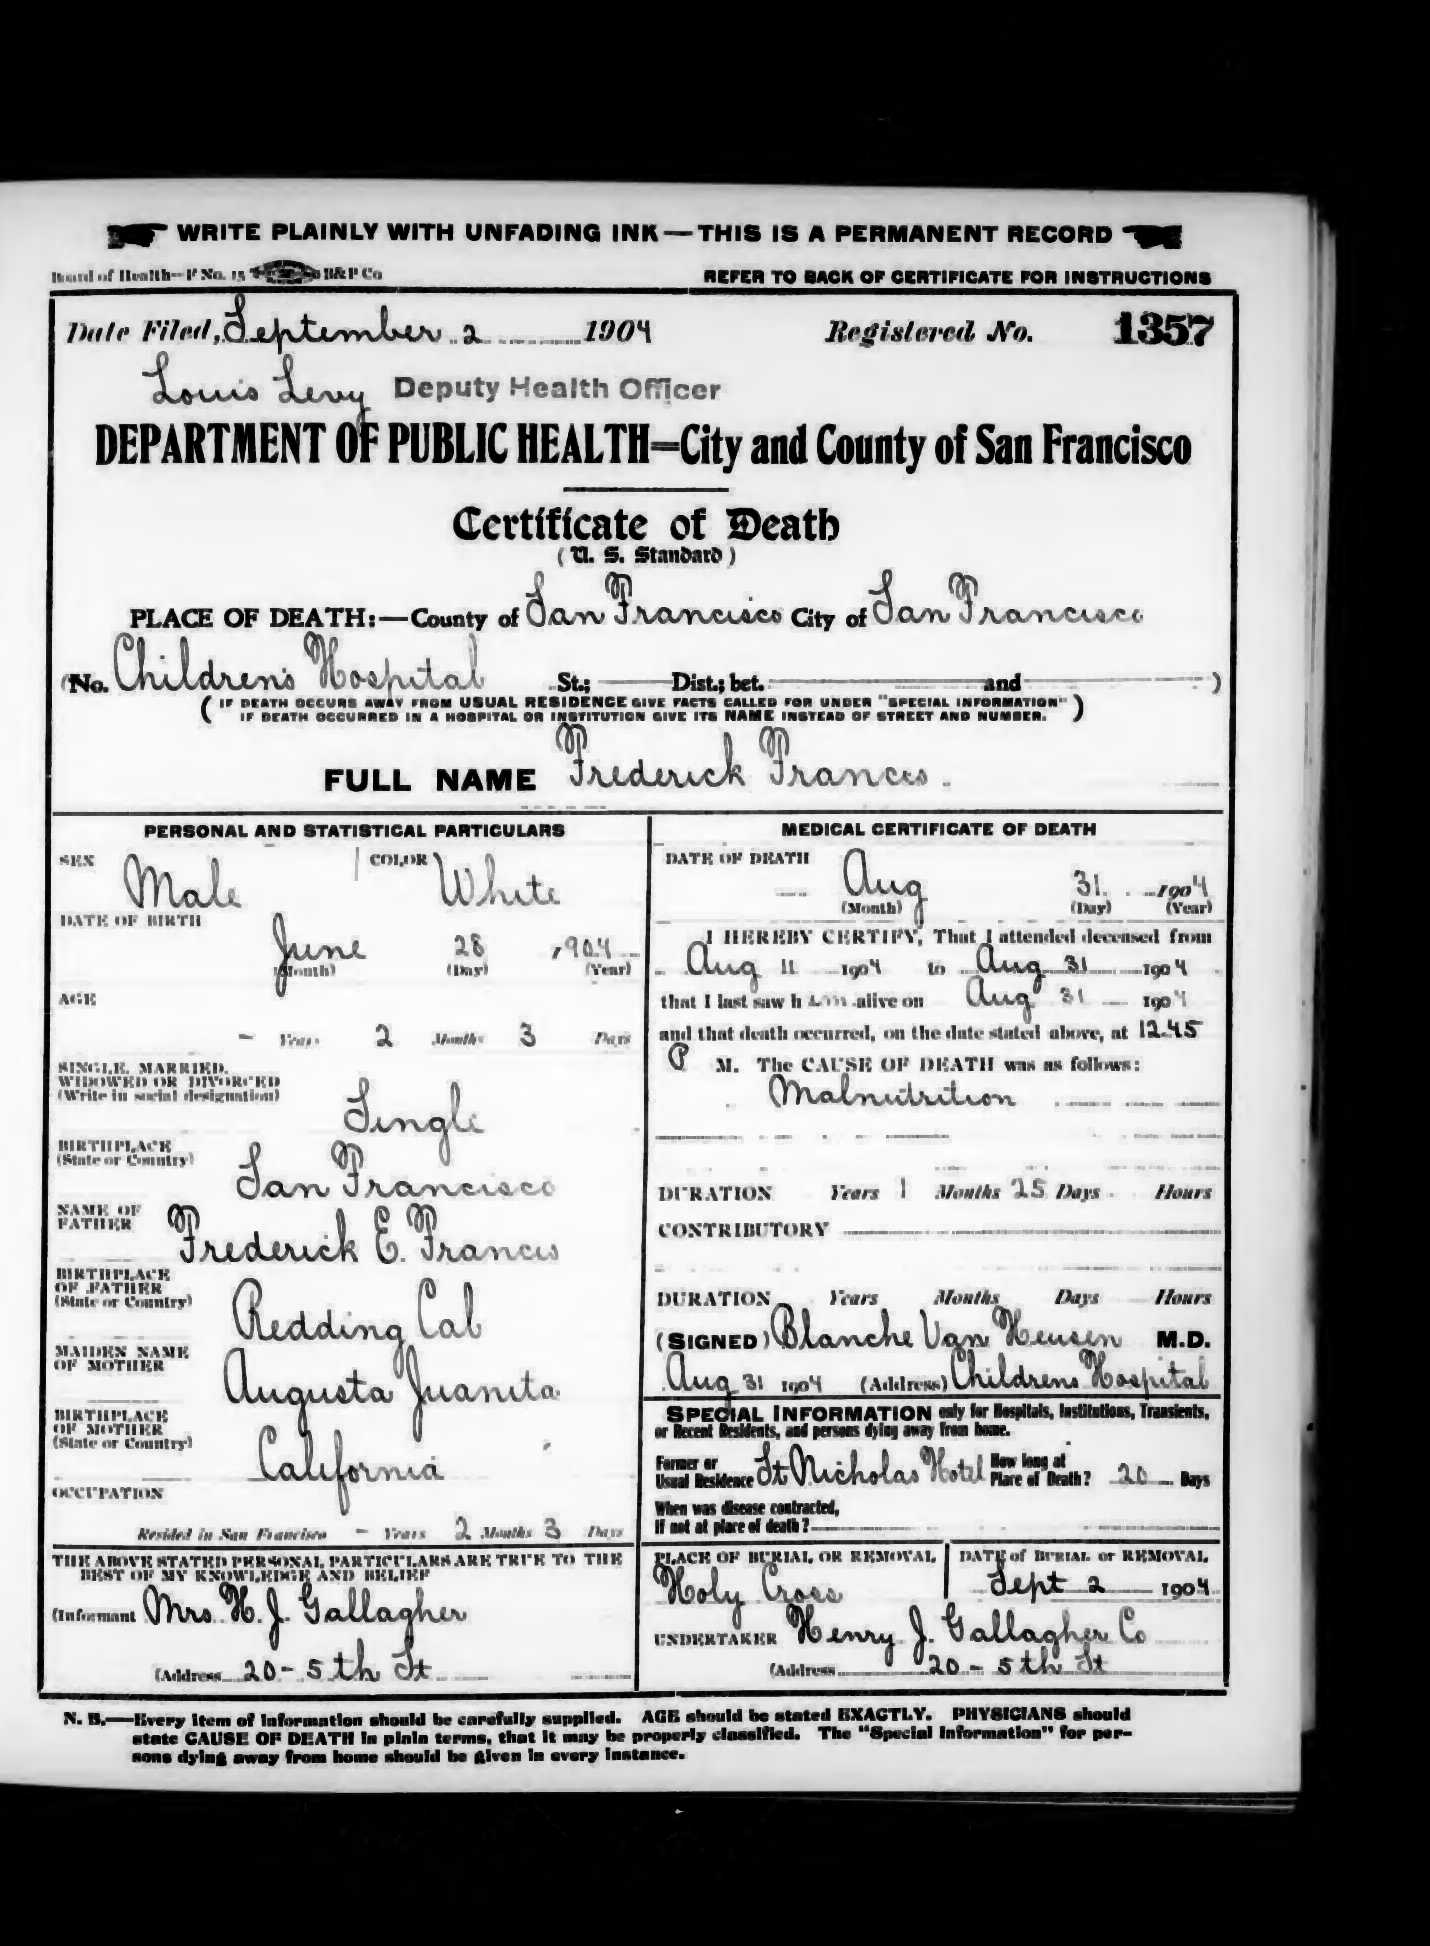 WRITE PLAINLY WITH UNFADING INK — THIS IS A PERMANENT RECORD
Board of Health—F No. 15 B&P Co
REFER TO BACK OF CERTIFICATE FOR INSTRUCTIONS
Date Filed, September 2 1904 Registered No. 1357
Louis Levy Deputy Health Officer
DEPARTMENT OF PUBLIC HEALTH=City and County of San Francisco
Certificate of Death
(U. S. Standard)
PLACE OF DEATH:—County of San Francisco City of San Francisco
(No. Children's Hospital St.; Dist.; bet. and )
(IF DEATH OCCURS AWAY FROM USUAL RESIDENCE GIVE FACTS CALLED FOR UNDER "SPECIAL INFORMATION"
IF DEATH OCCURRED IN A HOSPITAL OR INSTITUTION GIVE ITS NAME INSTEAD OF STREET AND NUMBER.)
FULL NAME Frederick Francis.
PERSONAL AND STATISTICAL PARTICULARS
SEX Male COLOR White
DATE OF BIRTH
June 28 1904
(Month) (Day) (Year)
AGE
– Years 2 Months 3 Days
SINGLE, MARRIED,
WIDOWED OR DIVORCED
(Write in social designation)
Single
BIRTHPLACE
(State or Country)
San Francisco
NAME OF
FATHER
Frederick E. Francis
BIRTHPLACE
OF FATHER
(State or Country)
Redding Cal
MAIDEN NAME
OF MOTHER
Augusta Juanita
BIRTHPLACE
OF MOTHER
(State or Country)
California
OCCUPATION
Resided in San Francisco – Years 2 Months 3 Days
THE ABOVE STATED PERSONAL PARTICULARS ARE TRUE TO THE
BEST OF MY KNOWLEDGE AND BELIEF
(Informant Mrs. H. J. Gallagher
(Address 20 - 5th St
MEDICAL CERTIFICATE OF DEATH
DATE OF DEATH
Aug 31 1904
(Month) (Day) (Year)
I HEREBY CERTIFY, That I attended deceased from
Aug 11 1904 to Aug 31 1904
that I last saw h im alive on Aug 31 1904
and that death occurred, on the date stated above, at 12.45
P M. The CAUSE OF DEATH was as follows:
Malnutrition
DURATION Years 1 Months 25 Days Hours
CONTRIBUTORY
DURATION Years Months Days Hours
(SIGNED) Blanche Van Heusen M.D.
Aug 31 1904 (Address) Childrens Hospital
SPECIAL INFORMATION only for Hospitals, Institutions, Transients,
or Recent Residents, and persons dying away from home.
Former or
Usual Residence St. Nicholas Hotel How long at
Place of Death? 20 Days
When was disease contracted,
If not at place of death?
PLACE OF BURIAL OR REMOVAL DATE of BURIAL or REMOVAL
Holy Cross Sept 2 1904
UNDERTAKER Henry J. Gallagher Co
(Address 20 - 5th St
N. B.—Every item of information should be carefully supplied. AGE should be stated EXACTLY. PHYSICIANS should
state CAUSE OF DEATH in plain terms, that it may be properly classified. The "Special Information" for per-
sons dying away from home should be given in every instance.